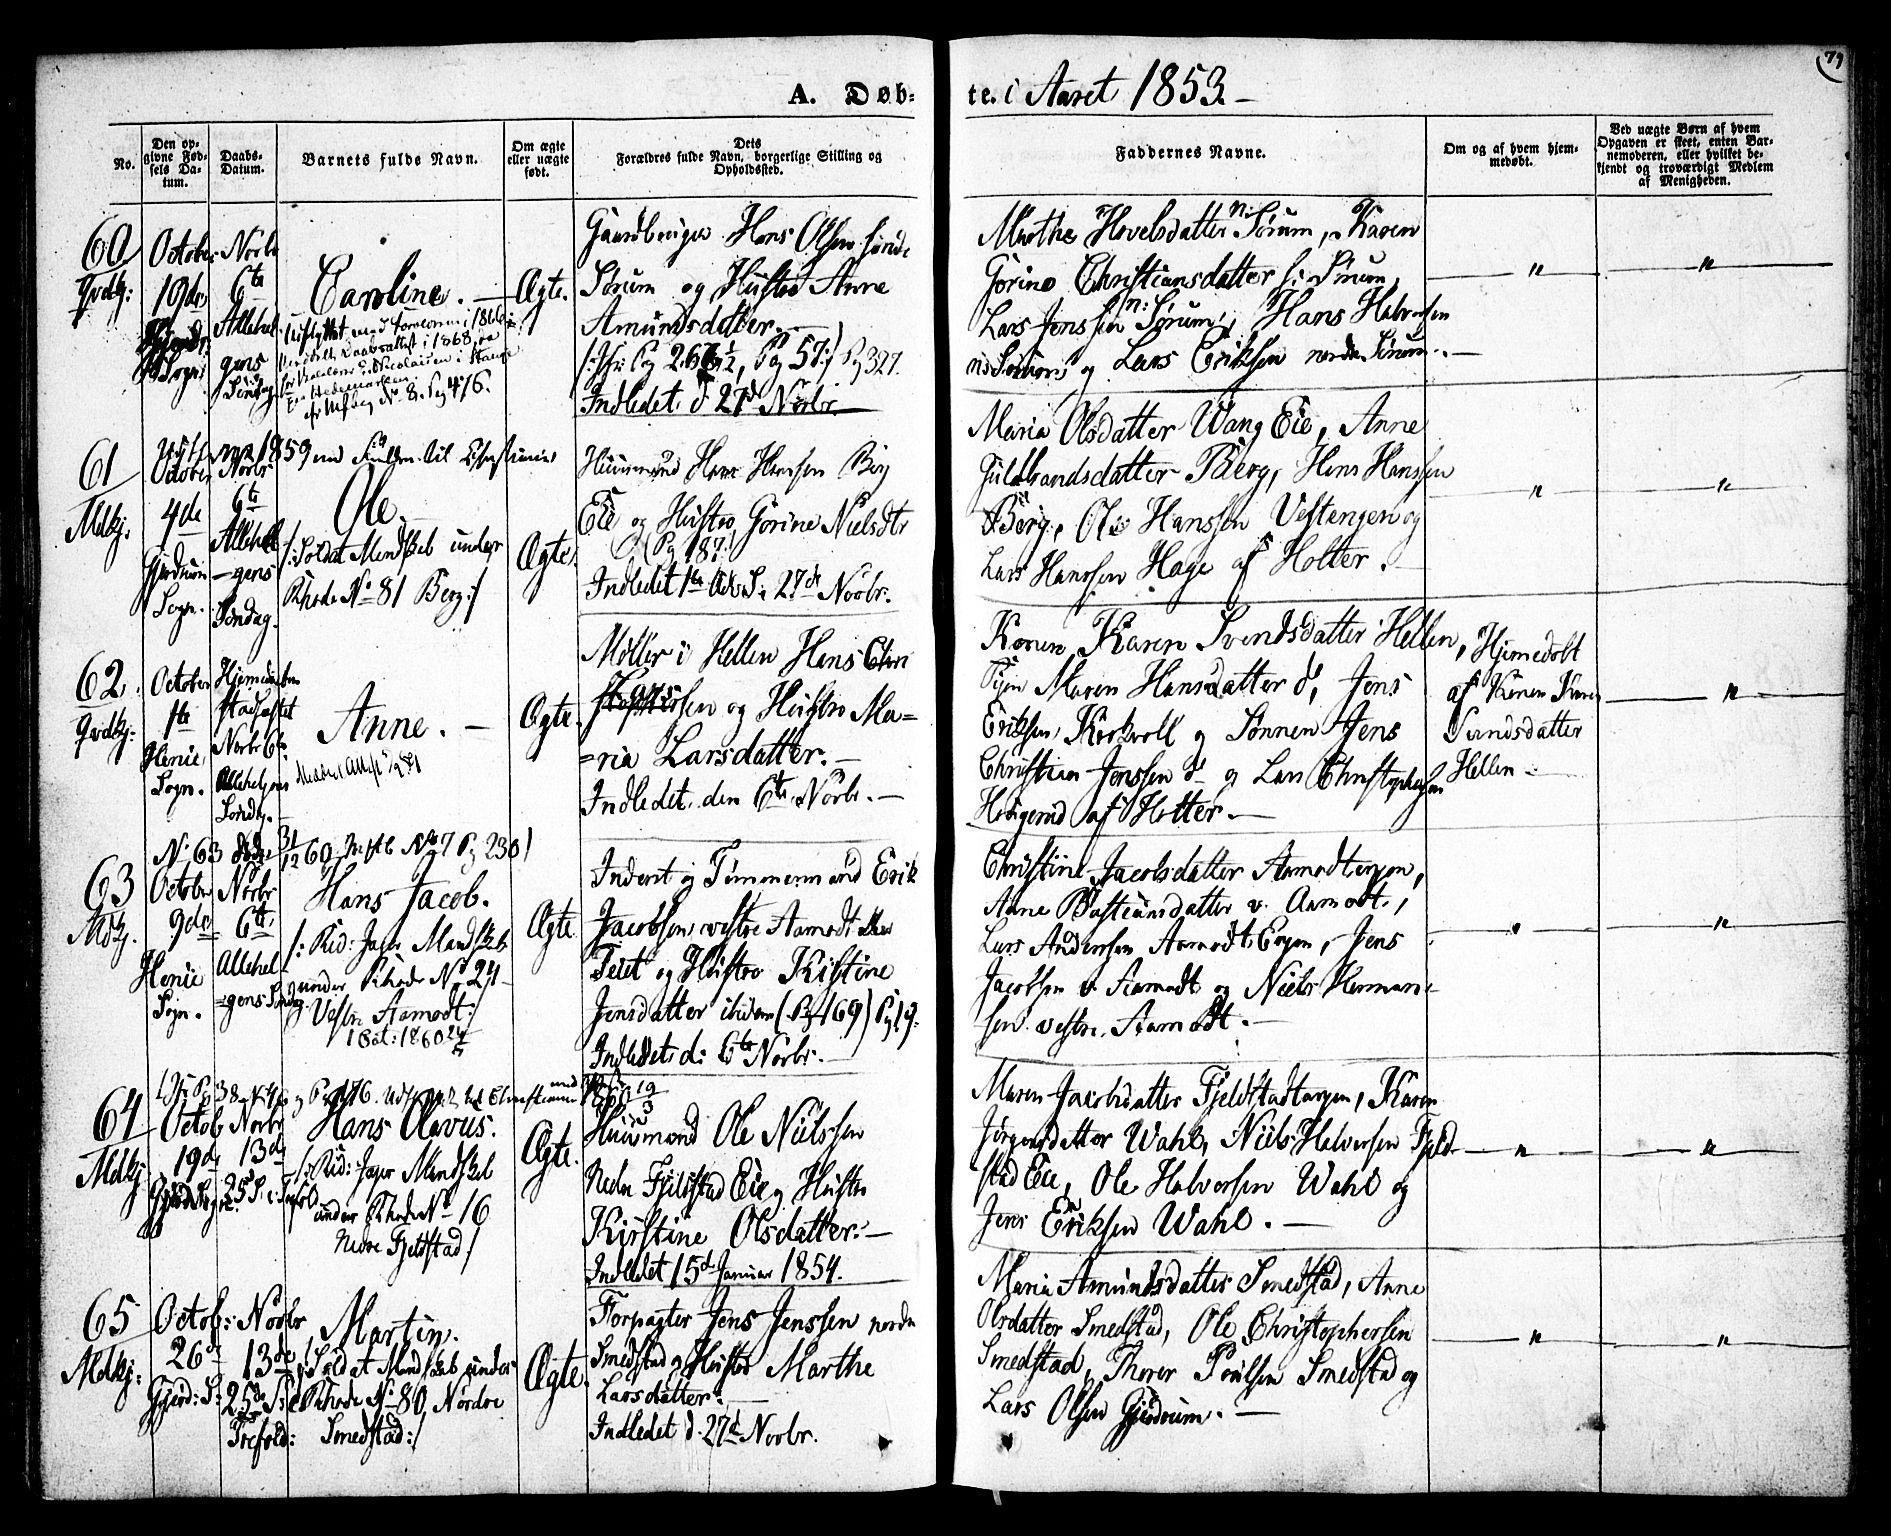 79
A. Døb-
te. i Aaret 1853.
No.
Den op-
givne Fød-
sels Da-
tum.
Daabs-
Datum.
Barnets fulde Navn.
Om ægte
eller uægte
født.
Dets
Forældres fulde Navn, borgerlige Stilling og
Opholdssted.
Faddernes Navne.
Om og af hvem hjem-
medøbt.
Ved uægte Børn af hvem
Opgaven er skeet, enten Bar-
nemoderen, eller hvilket be-
kjendt og troværdigt Medlem
af Menigheden.
60
Qvdkj:
October
19de
Sogn
Novbr
6te
Allehel
gens
Søndag
Caroline.
Ægte.
Gaardbruger Hans Olsen
Sørum og Hustro Anne
Amundsdatter.
Pg 57:/ Pg 327.
Indledet d 27d Novbr.
Marthe Hovelsdatter n: Sørum, Karen
Gorine Christiansdatter s: Sørum,
Lars Jenssen n: Sørum, Hans Halvorsen
n: Sørum og Lars Eriksen nordre Sørum.
"
"
61
Mdkj.
October
4de
Gjerdrum
Sogn.
Novbr
6te
Allehel
-gens
Søndag.
1859
Ole
/: Soldat Mandskab under
Rhode No 81 Berg :/
Ægte.
Huusmand Hans Hansen Berg
Eie og Hustro Gorine Nielsdtr
(Pg 187:)
Indledet 1ste Adv. S: 27de Novbr.
Maria Olsdatter Wang Eie, Anne
Guldbrandsdatter Berg, Hans Hansen
Berg, Ole Hanssen Vestengen og
Lars Hanssen Hage af Holter.
"
"
62
Qvdkj:
October
1ste
Henie
Sogn.
Hjemmedaaben
stadfæstet
Novbr 6te
Allehelgens
Søndg.
Anne.
Ægte.
Møller i Hellen Hans Chri
stophersen og Hustro Ma=
=ria Larsdatter.
Indledet den 6te Novbr.
Konen Karen Svendsdatter Hellen,
Pigen Maren Hansdatter d, Jens
Eriksen Kirkvoll og Sønnen Jens
Christian Jenssen d og Lars Christophersen
af Holter.
Hjemedøbt
af Konen Karen
Svendsdatter
Hellen
"
63
Mdkj.
No 63 døde 31/12 60 Pg 230
October
9de
Henie
Sogn.
Novbr
6te
Allehel
=gens Søndag
Hans Jacob.
/: Rid: Jæger Mandskab
under Rhode No 24
Vestre Aamodt :/
Ægte
Inderst og Tømmermand Erik
Jacobsen vestre Aamodt
Eiet og Hustro Kistine
Jensdatter ibidem (Pg 169) Pg 19.
Indledet d: 6te Novbr.
Christine Jacobsdatter Aamodtengen,
Anne Bastiansdatter v. Aamodt,
Lars Anderssen Aamodt Engen, Jens
Jacobsen v. Aamodt og Niels Herman-
sen vestre Aamodt.
"
"
64
Mdkj
Octob
19d
Novbr
13d
25 S. e. Trefold
Hans Olavus.
/: Rid: Jæger Mandskab
under Rhode No 16
Nedre Fjeldstad :/
Ægte.
Huusmand Ole Nielssen
Nedre Fjeldstad Eie og Hustro
Kirstine Olsdatter.
Indledet 15d Januar 1854.
Maren Jacobsdatter Fjeldstadengen, Karen
Jørgensdatter Wahl, Niels Halvorsen Fjeld-
stad Eie, Ole Halvorsen Wahl og
Jens Eriksen Wahl.
"
"
65
Mdkj:
Octob:
26d
Gjerd: S:
Novbr
13de
25de S: e
Trefold:
Martin.
/: Soldat Mandskab under
Rhode No 80 Nordre
Smedstad :/
Ægte.
Forpagter Jens Jenssen nordre
Smedstad og Hustro Marthe
Larsdatter.
Indledet d. 27d Novbr.
Maria Amundsdatter Smedstad, Anne
Olsdatter Smedstad, Ole Christophersen
Smedstad, Thorer Poulsen Smedstad og
Lars Olsen Gjerdrum.
"
"